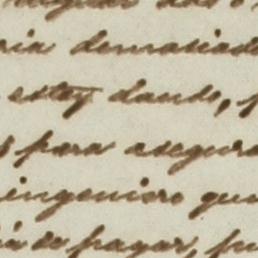 demasiado
estoy dando,
para asegura
ingeniero que
de pagar,